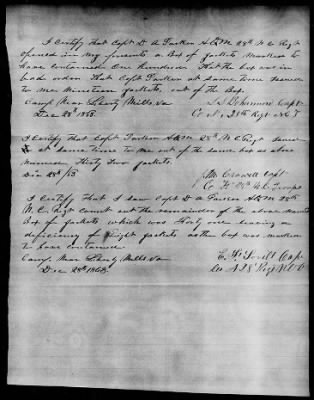 I Certify that Capt D A Parker AQM 28th N C Regt
opened in my presents a Box of Jackets Marked to
have contained One hundred That the box was in
bad order that Capt Parker at same time issued
to me Nineteen Jackets, out of the Box.
Camp Near Liberty Mills Va
Dec 28th 1863.
Capt
Co , 28th Regt N C T
I Certify that Capt Parker AQM 28th N C Regt issued
at same time to me out of the same box as above
named Thirty two Jackets.
Dec 28th /63
Crowell Capt
Co 28th N C Troops
I Certify that I saw Capt D A Parker AQM 28th
N. C. Regt Count out the remainder of the above named
Box of Jackets which was forty one leaving a
deficiency of Eight Jackets as the box was marked
to have contained
Camp Near Liberty Mills Va
Dec 28th 1863.
E. F. Lovill Capt
Co A 28 Regt N C T